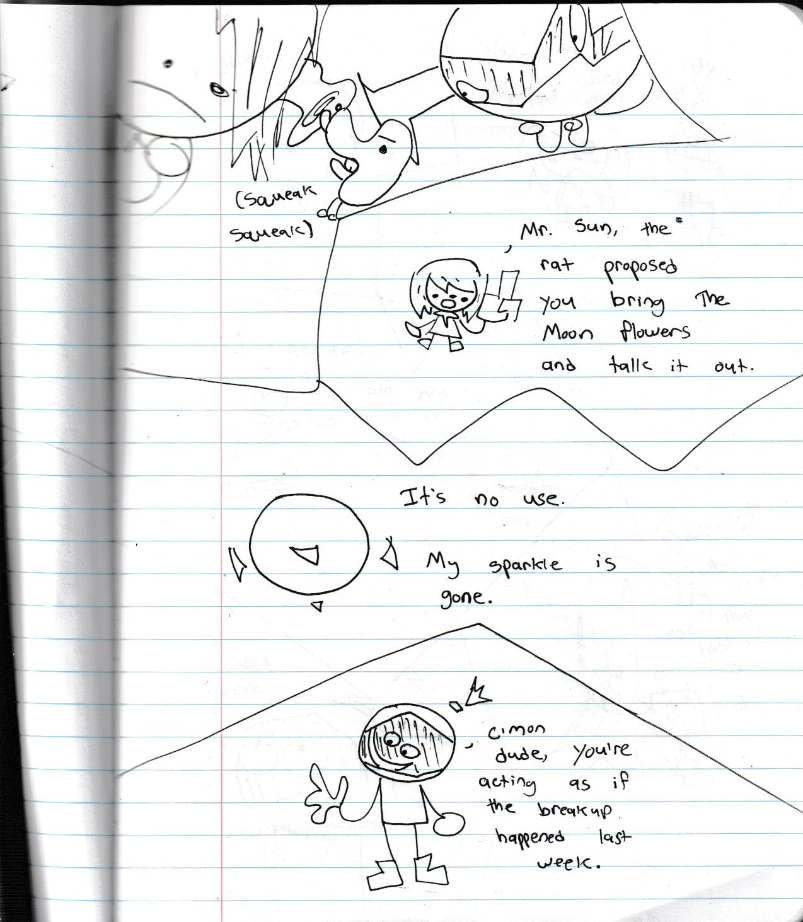 (Squeak
squeak)
Mr. Sun, the
rat proposed
you bring The
Moon flowers
and talk it out.
It's no use.
My sparkle is
gone.
c'mon
dude, you're
acting as if
the breakup
happened last
week.